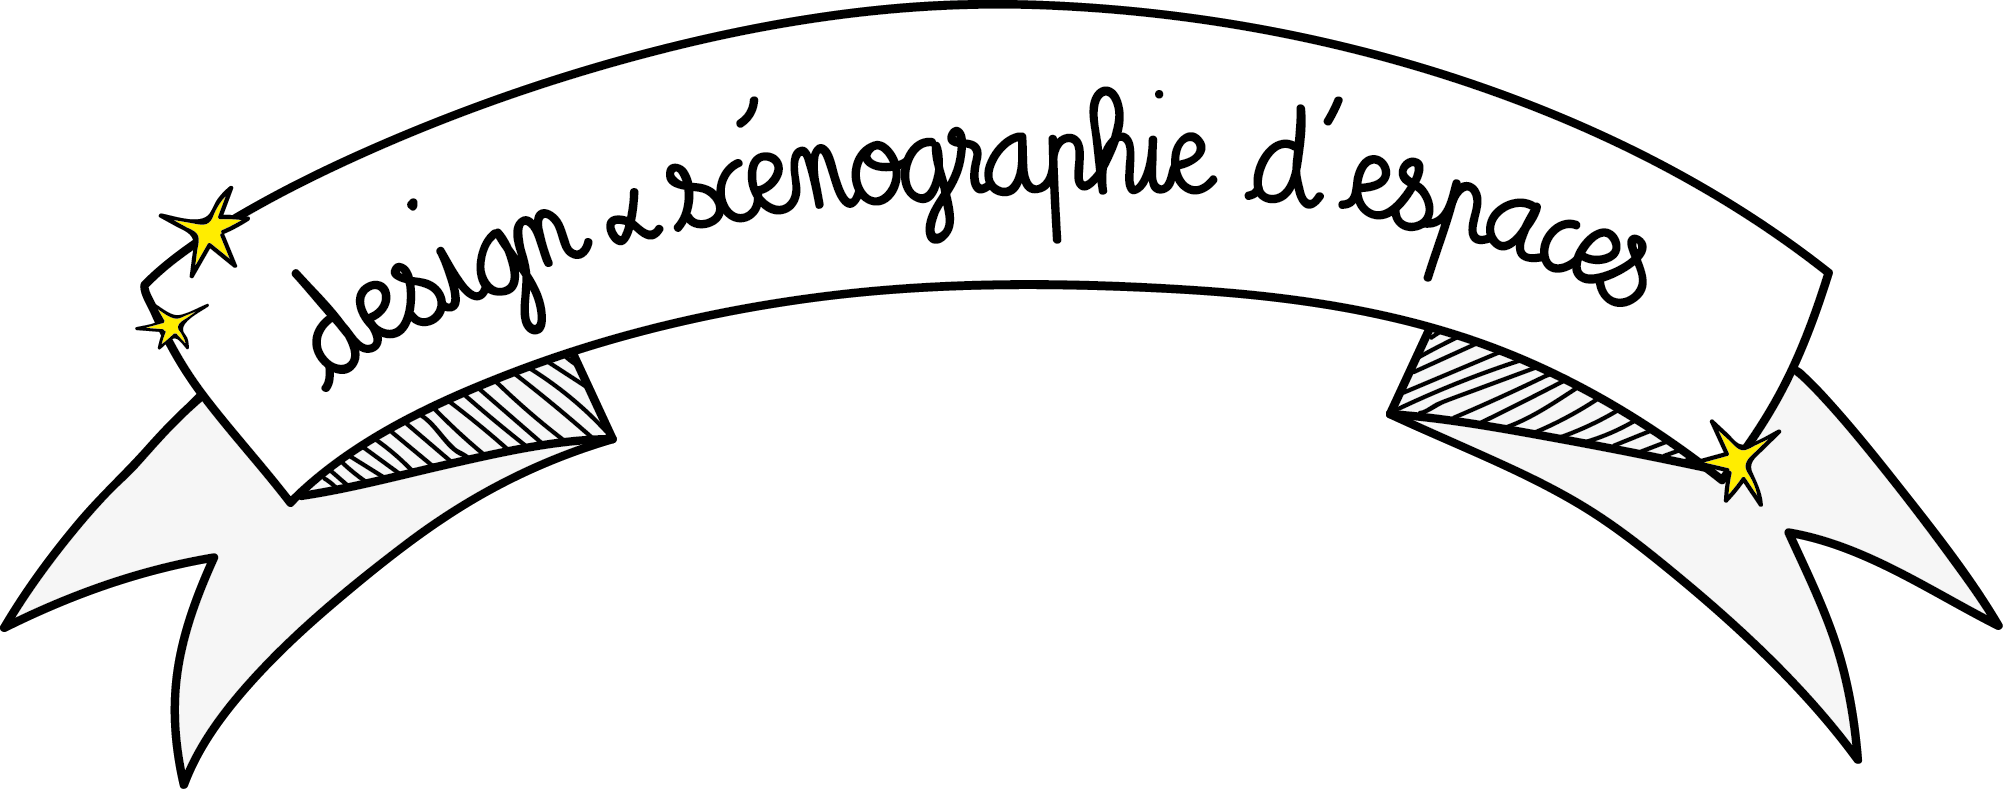 design & scénographie d'espaces